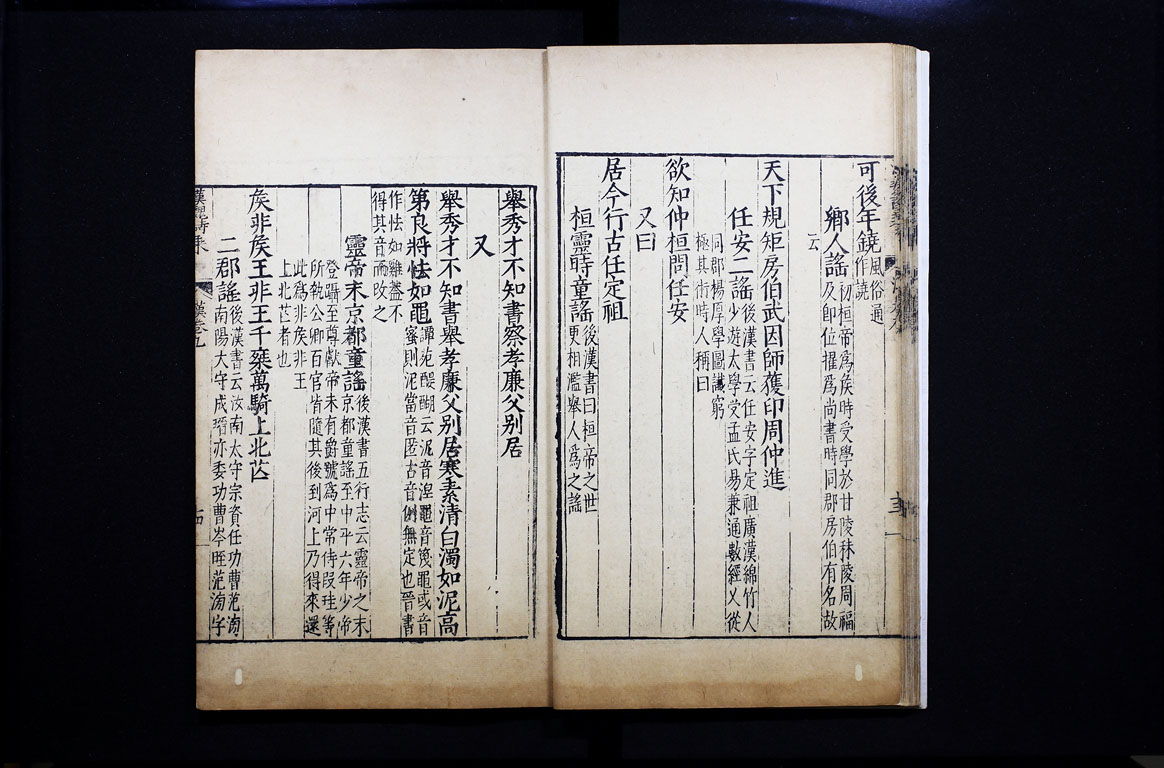 可後年鐃風俗通
作譊
鄉人謡初桓帝為矦時受學於甘陵秣陵周福
及即位擢爲尚書時同郡房伯有名故
云
天下規矩房伯武因師獲印周仲進
任安二謡後漢書云任安字定祖廣漢綿竹人
少遊太學受孟氏易兼通數經又從
同郡楊厚學圖讖窮
極其術時人稱曰
欲知仲桓問任安
又曰
居今行古任定祖
桓靈時童謡後漢書曰桓帝之世
更相濫舉人爲之謡
舉秀才不知書察孝廉父别居
又
舉秀才不知書舉孝廉父别居寒素清白濁如泥高
第良將怯如黽譚苑醍醐云泥音涅黽音篾黽或音
蜜則泥當音匿古音例無定也晉書
作怯如雞蓋不
得其音而改之
靈帝末京都童謡後漢書五行志云靈帝之末
京都童謡至中平六年少帝
登躡至尊獻帝未有爵號爲中常侍段珪等
所執公卿百官皆隨其後到河上乃得來還
此爲非矦非王
上北芒者也
矦非矦王非王千乘萬騎上北芒
二郡謡後漢書云汝南太守宗資任功曹范滂
南陽大守成瑨亦委功曹岑晊范滂字